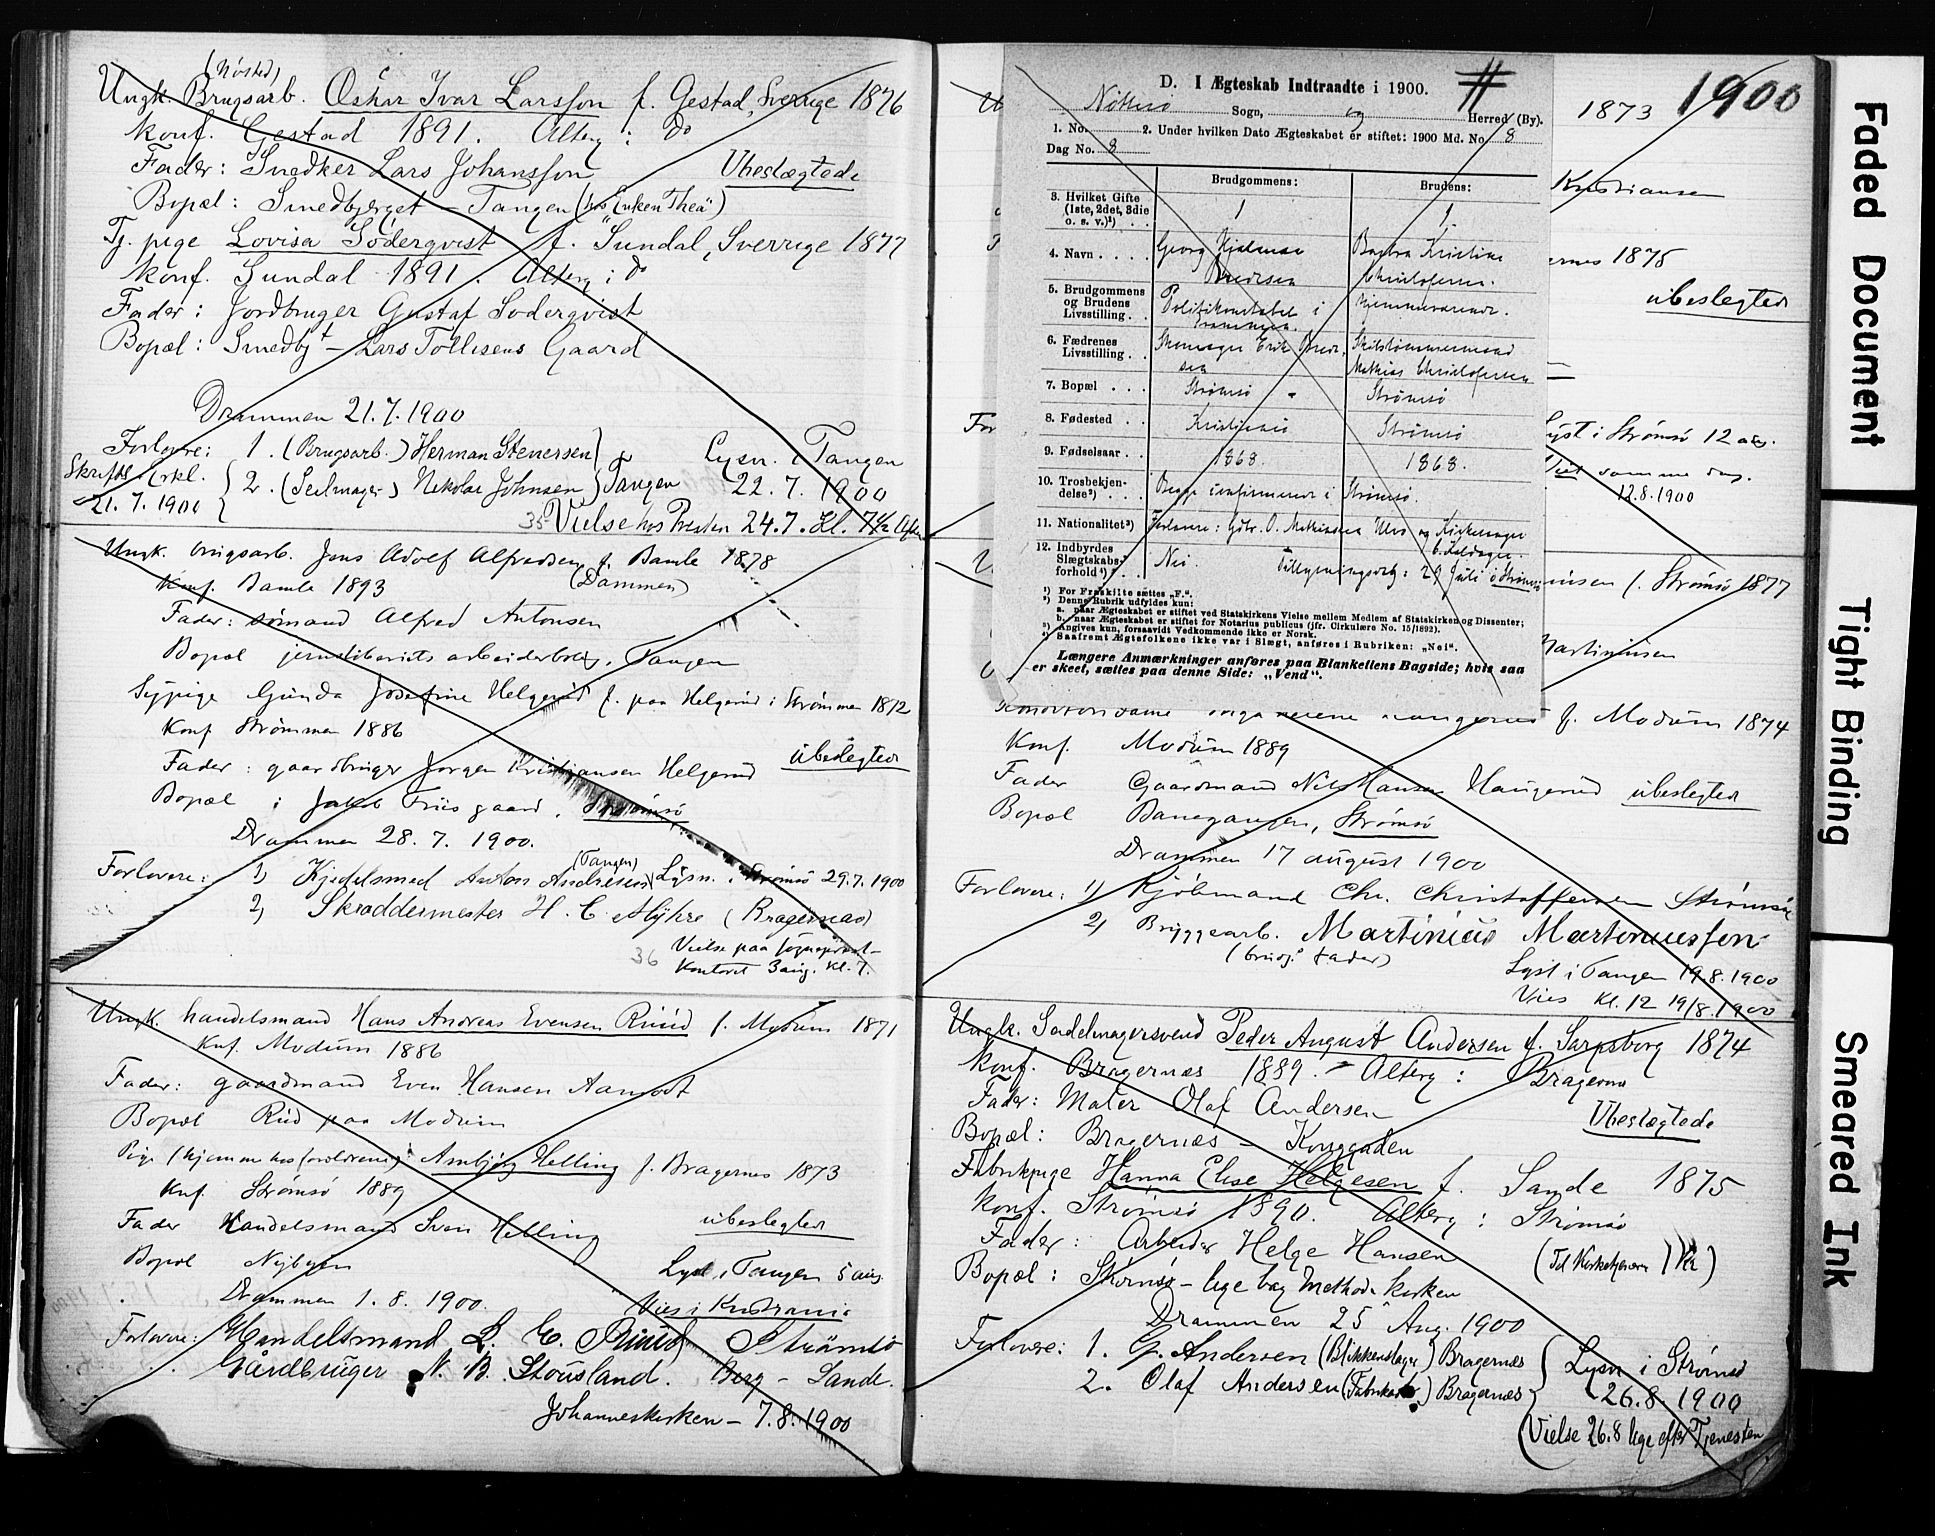 (Nøsted)
Ungk. Brugsarb. Oskar Ivar Larsson f. Gestad, Sverrige 1876
Konf. Gestad 1891. Alterg: do
Fader: Snedker Lars Johansson Ubeslægtede
Bopæl: Smedbjerget – Tangen (hos Enken Thea")
Tj. pige Lovisa Söderqvist f. Sundal, Sverrige 1877
Konf. Sundal 1891. Alterg: do
Fader: Jordbruger Gustaf Søderqvist
Bopæl: Smedbjt – Lars Tollisens Gaard
Drammen 21.7.1900
Forlovere: 1. (Brugsarb.) Herman Stenersen Lysn. i Tangen
Skriftl. Erkl. 2. (Seilmager) Nikolai Johnsen Tangen 22.7.1900
21.7.1900
35 Vielse hos Presten 24.7. Kl. 7½ Aften
Ungk. brugsarb. Jens Adolf Alfredsen f. Bamle 1878
Konf. Bamle 1893 (Dammen)
Fader: sømand Alfred Antonsen
Bopæl jernstøberiets arbeiderbolig, Tangen
Sypige Gunda Josefine Helgerud f. paa Helgerud i Strømmen 1872
Konf Strømmen 1886
Fader: gaardbruger Jørgen Kristiansen Helgerud ubeslegted
Bopæl i Jakob Friis gaard, Strømsø
Drammen 28.7.1900.
(Tangen)
Forlovere: 1) Kjedelsmed Anton Andresen Lysn. i Strømsø 29.7.1900
2) Skræddermester H. C. Myhre (Bragernæs)
36 Vielse paa sogneprest-
kontoret 3 aug. kl. 7.
Ungk. handelsmand Hans Andreas Evensen Ruud f. Modum 1871
Knf. Modum 1886
Fader: gaardmand Even Hansen Aamodt
Bopæl Rud paa Modum
Pige (hjemme hos forældrene): Arnbjørg Helling f. Bragernes 1873
Knf. Strømsø 1889
Fader Handelsmand Sven Helling ubeslegted
Bopæl Nybyen Lyst i Tangen 5 aug.
Drammen 1.8.1900. Vies i Kristiania
Forlovere: Handelsmand L. E. Ruud Strømsø
Gårdbruger N. B. Stousland. Berg – Sande.
Johanneskirken – 7.8.1900
1900
D. I Ægteskab Indtraadte i 1900. #
Nøtterø Sogn, og Herred (By).
1. No. 2. Under hvilken Dato Ægteskabet er stiftet: 1900 Md. No. 8
Dag No. 8
Brudgommens: Brudens:
3. Hvilket Gifte (1ste, 2det, 3die o. s. v.)¹) . . 1 1
4. Navn . . . . Georg Hjalmar Andresen Kristine Christofersen.
5. Brudgommens og Brudens Livsstilling . . Politikonstabel i Drammen. Hjemmeværende.
6. Fædrenes Livsstilling . . Skomager Erik Andresen Skibstømmermand Mathias Christofersen
7. Bopæl . . . Strømsø - Strømsø
8. Fødested . . Strømsø
9. Fødselsaar . . 1868. 1868.
10. Trosbekjendelse²) . . . Begge konfirmerede i Strømsø.
11. Nationalitet³) Forlovere: O. Mathiassen og Kirkesanger
12. Indbyrdes Slægtskabsforhold⁴) . . Nei. Tillysningsdag: 29 Juli i Strømsø
¹) For Fraskilte sættes „F.“.
²) Denne Rubrik udfyldes kun:
a. naar Ægteskabet er stiftet ved Statskirkens Vielse mellem Medlem af Statskirken og Dissenter;
b. naar Ægteskabet er stiftet for Notarius publicus (jfr. Cirkulære No. 15/1892).
³) Angives kun, forsaavidt Vedkommende ikke er Norsk.
⁴) Saafremt Ægtefolkene ikke var i Slægt, anføres i Rubriken: „Nei“.
Længere Anmærkninger anføres paa Blankettens Bagside; hvis saa
er skeet, sættes paa denne Side: „Vend“.
1873
Kristiansen
1875
ubeslegted
For
Lyst i Strømsø 12 aug.
samme dag.
12.8.1900
f. Strømsø 1877
Martinusen
f. Modum 1874
Konf. Modum 1889
Fader Gaardmand Nils Hansen Haugerud ubeslegted
Bopæl Banegangen, Strømsø
Drammen 17 august 1900
Forlovere: 1) Kjøbmand Chr. Christoffersen Strømsø
2) Bryggearb. Martinius Martiniussen
(brudg. fader)
Lyst i Tangen 19.8.1900
Vies kl. 12 19/8.1900
Ungk. Sadelmagersvend Peder August Andersen f. Sarpsborg 1874
Konf. Bragernæs 1889. – Alterg: Bragernæs
Fader: Maler Olaf Andersen
Bopæl: Bragernæs – Konggaden Ubeslægtede
Fabrikpige Hanna Elise Helgesen f. Sande 1875
Konf. Strømsø 1890. Alterg: Strømsø
Fader: Arbeider Helge Hansen
Bopæl: Strømsø – lige bag Methodistkirken
Drammen 25 Aug. 1900
Forlovere: 1. G. Andersen (Blikkenslager) Bragernæs Lysn i Strømsø
2. Olaf Andersen (Fabrikarb.) Bragernæs 26.8.1900
(Vielse 26.8 lige efter Tjenesten
Faded Document
Tight Binding
Smeared Ink